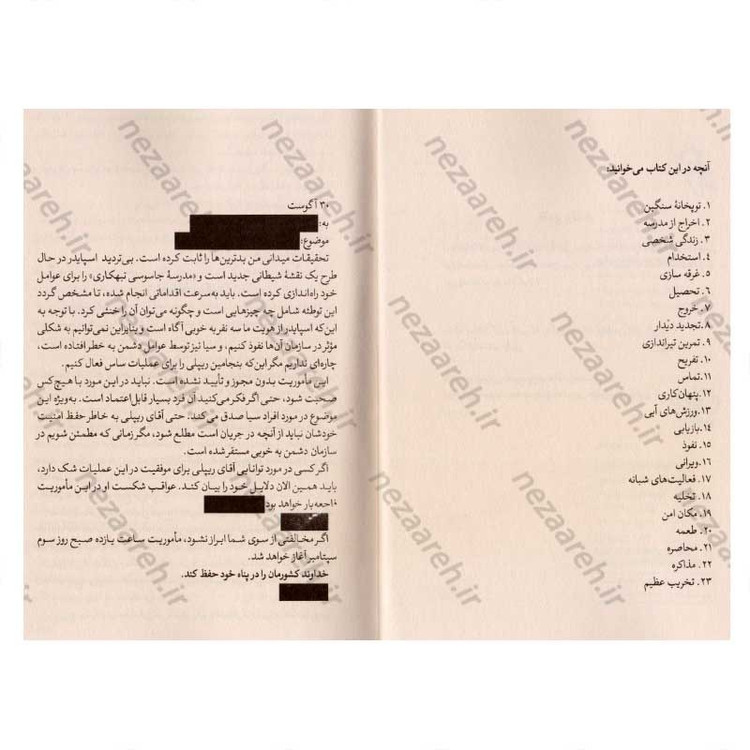 آنچه در این کتاب می‌خوانید:
۱. توپخانهٔ سنگین
۲. اخراج از مدرسه
۳. زندگی شخصی
۴. استخدام
۵. غرقه سازی
۶. تحصیل
۷. خروج
۸. تجدید دیدار
۹. تمرین تیراندازی
۱۰. تفریح
۱۱. تماس
۱۲. پنهان‌کاری
۱۳. ورزش‌های آبی
۱۴. بازیابی
۱۵. نفوذ
۱۶. ویرانی
۱۷. فعالیت‌های شبانه
۱۸. تخلیه
۱۹. مکان امن
۲۰. طعمه
۲۱. محاصره
۲۲. مذاکره
۲۳. تخریب عظیم
۳۰ آگوست
به:
موضوع:
تحقیقات میدانی من بدترین‌ها را ثابت کرده است. بی‌تردید اسپایدر در حال
طرح یک نقشهٔ شیطانی جدید است و «مدرسهٔ جاسوسی تبهکاری» را برای عوامل
خود راه‌اندازی کرده است. باید به‌سرعت اقداماتی انجام شده، تا مشخص گردد
این توطئه شامل چه چیزهایی است و چگونه می‌توان آن را خنثی کرد. با توجه به
این‌که اسپایدر از هویت ما سه نفر به خوبی آگاه است و بنابراین نمی‌توانیم به شکلی
مؤثر در سازمان آن‌ها نفوذ کنیم، و سیا نیز توسط عوامل دشمن به خطر افتاده است،
چاره‌ای نداریم مگر این‌که بنجامین ریپلی را برای عملیات ساس فعال کنیم.
این مأموریت بدون مجوز و تأیید نشده است. نباید در این مورد با هیچ‌کس
صحبت شود، حتی اگر فکر می‌کنید آن فرد بسیار قابل‌اعتماد است. به‌ویژه این
موضوع در مورد افراد سیا صدق می‌کند. حتی آقای ریپلی به خاطر حفظ امنیت
خودشان نباید از آنچه در جریان است مطلع شود، مگر زمانی که مطمئن شویم در
سازمان دشمن به خوبی مستقر شده است.
اگر کسی در مورد توانایی آقای ریپلی برای موفقیت در این عملیات شک دارد،
باید همین الان دلایل خود را بیان کند. عواقب شکست او در این مأموریت
فاجعه‌بار خواهد بود
اگر مخالفتی از سوی شما ابراز نشود، مأموریت ساعت یازده صبح روز سوم
سپتامبر آغاز خواهد شد.
خداوند کشورمان را در پناه خود حفظ کند.
nezaareh.ir